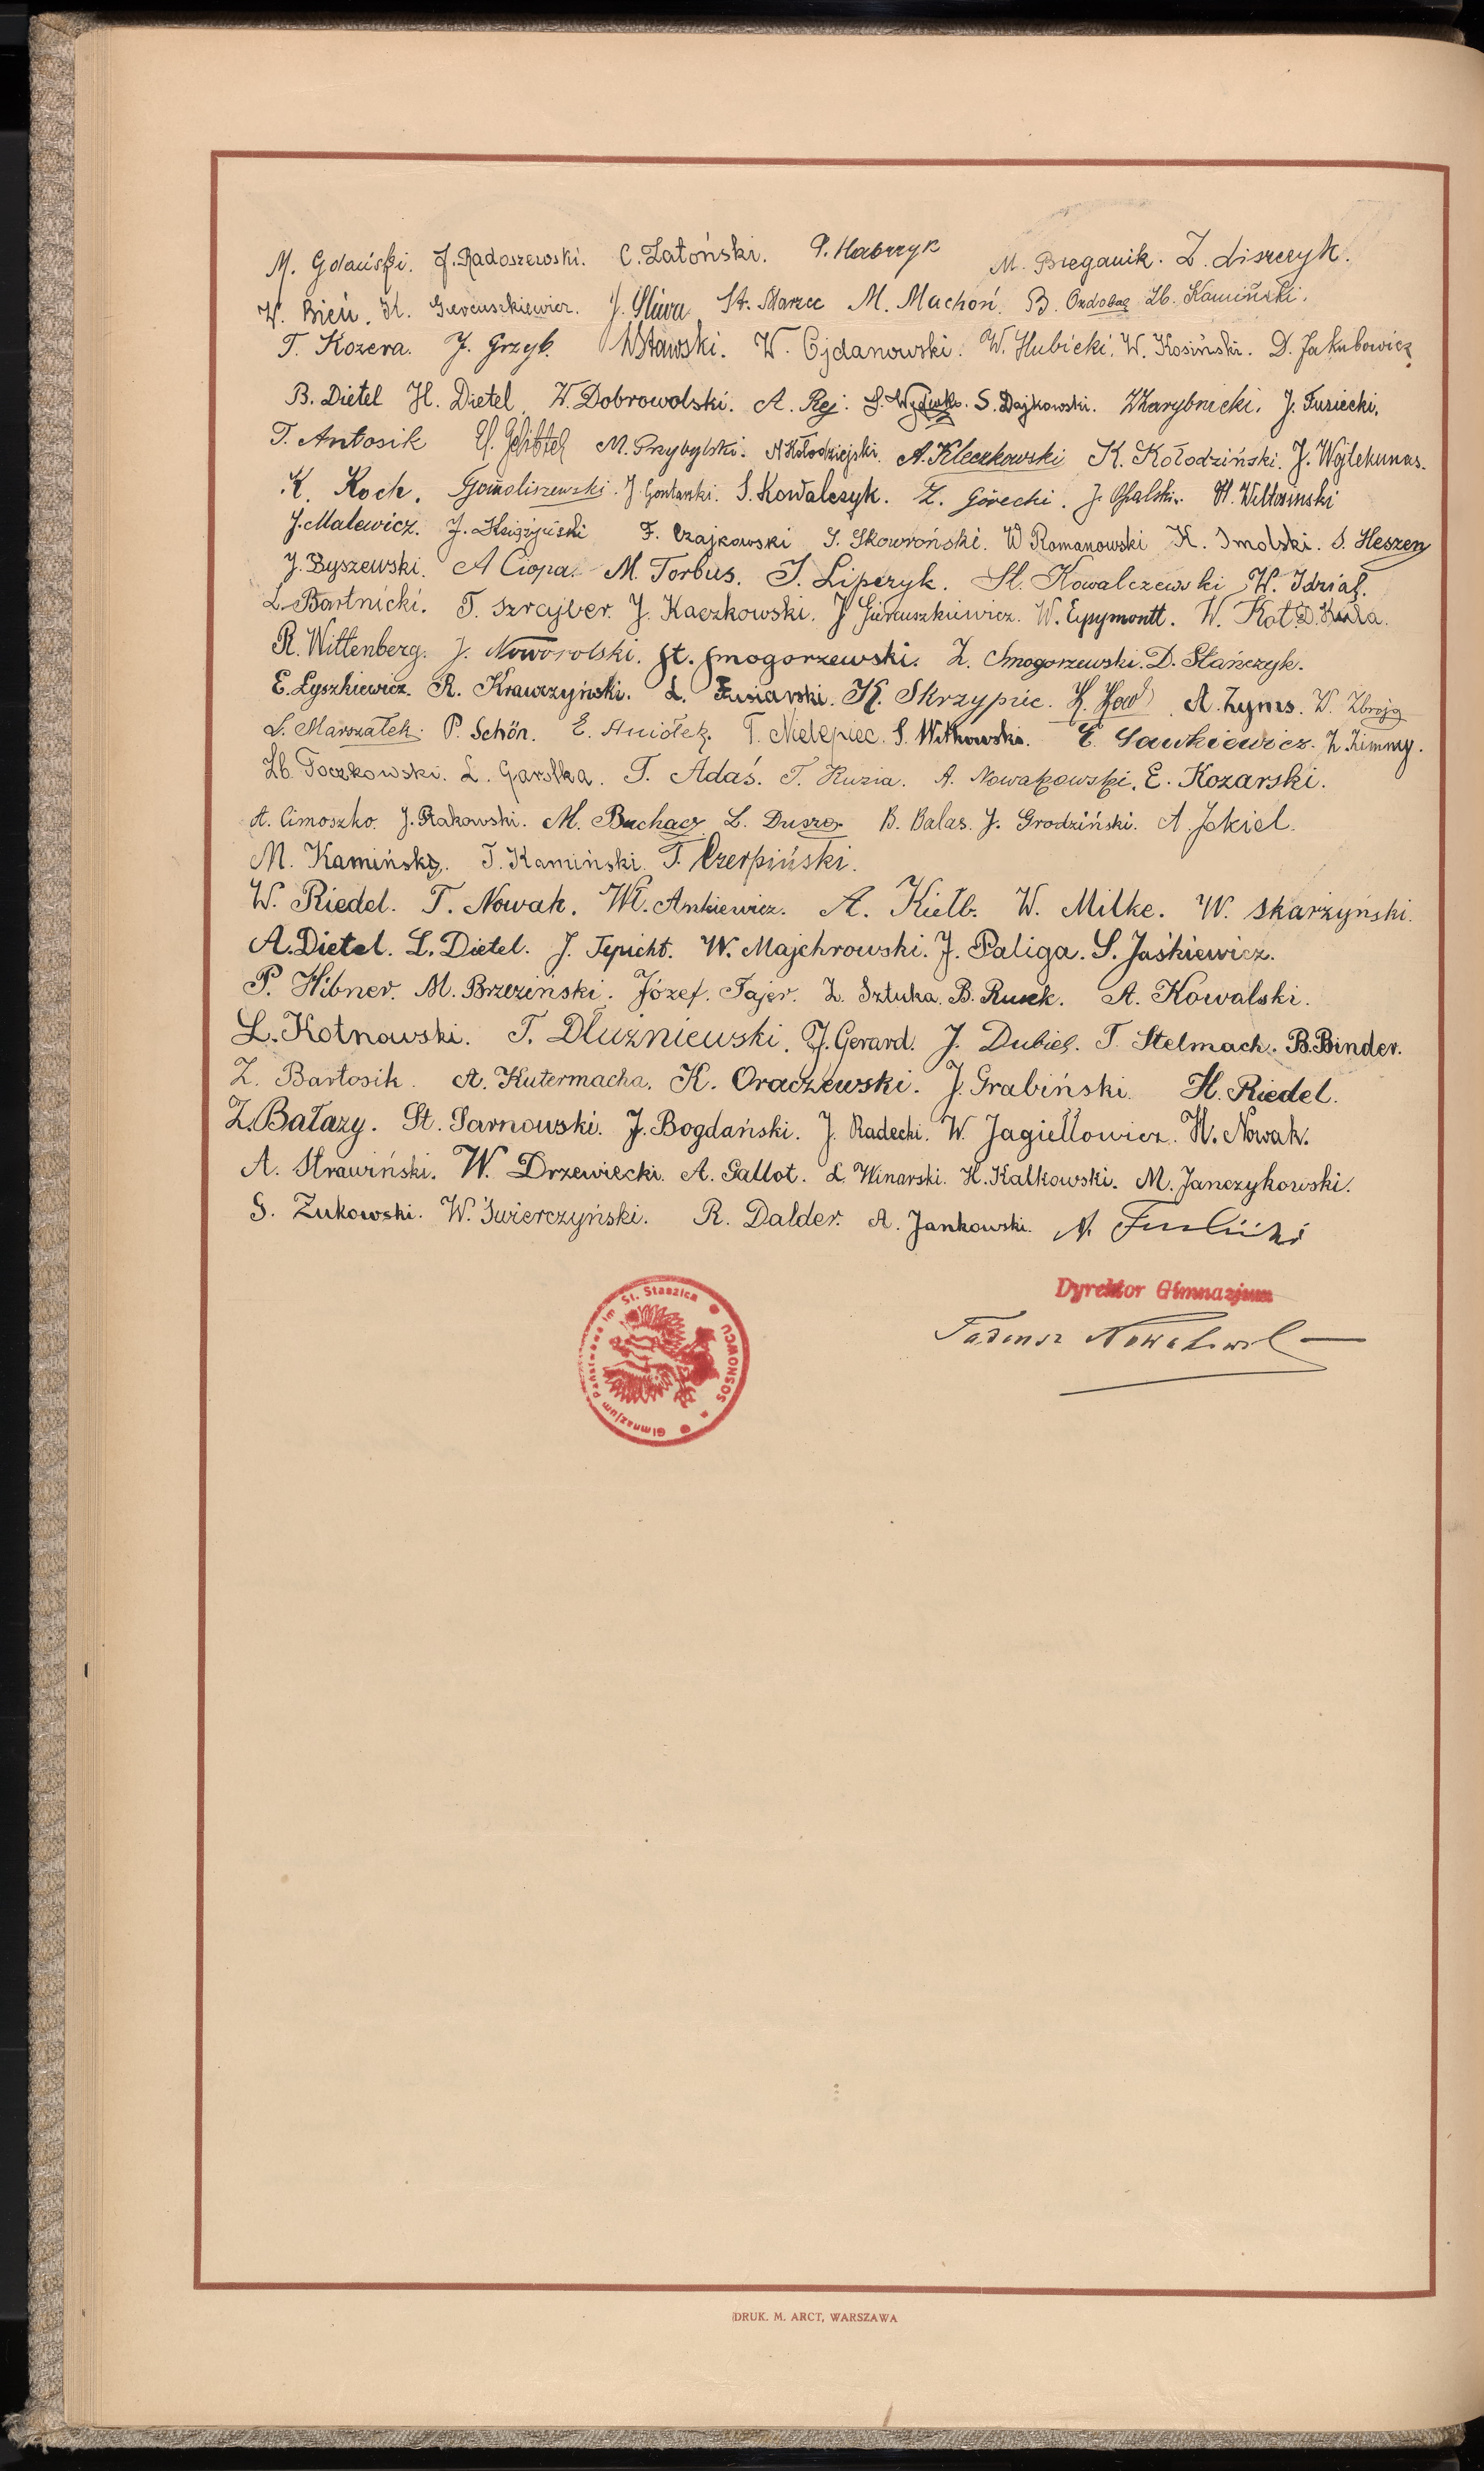 M. Gdański. J. Radoszewski. C. Zatoński. P. Habrzyk M. Breganik. Z. Liszczyk.
W. Bień. K. J. Śliwa St. Marzec M. Machoń. B. Ozdoba Zb. Kamiński.
T. Kozera. J. Grzyb. W. Ojdanowski. W. Hubicki. W. Kosiński. D. Jakubowicz
B. Dietel H. Dietel W. Dobrowolski. A. Rej. S. Dajkowski. J. Fusiecki.
T. Antosik M. Przybylski. A Kołodziejski. A. Kleczkowski K. Kołodziński. J. Wojlekunas.
K. Koch. Gomoliszewski. J. Gontarski. S. Kowalczyk. Z. Górecki. J. Opalski. H. Wiltosinski
J. Malewicz. J. Księżyński F. Czajkowski S. Skowroński. W Romanowski K. Smolski. S. Heszen
J. Byszewski. A Ciopa. M. Torbus. T. Lipczyk. St. Kowalczewski W. Idziak.
L. Bartnicki. T. Szrajber. J. Kaczkowski. J Giercuszkiewicz. W. Eysymontt. W. Kot. D. Kula.
R. Wittenberg. J. Noworolski. St. Smogorzewski. Z. Smogorzewski. D. Stańczyk.
E. Łyszkiewicz. R. Krawczyński. L. Fusiarski. K. Skrzypiec. A. Zyms. W. Zbroja
S. Marszałek. P. Schön. E. Aniołek. T. Nielepiec. S. Witkowski. E. Sawkiewicz. Z. Zimny.
Zb. Toczkowski. L. Garstka. T. Adaś. T. Kuzia. A. Nowakowski. E. Kozarski.
A. Cimoszko. J. Rakowski. M. Buchacz L. Dusza B. Balas. J. Grodziński. A. Jekiel.
M. Kamiński. T. Kamiński. T. Czerpiński.
W. Riedel. T. Nowak. Wł. Ankiewicz. A. Kiełb. W. Milke. W. Skarzyński.
A. Dietel. L. Dietel. J. Tepicht. W. Majchrowski. J. Paliga. S. Jaśkiewicz.
P. Hibner. M. Brzeziński. Józef. Tajer. Z. Sztuka. B. Rusek. A. Kowalski.
L. Kotnowski. T. Dłużniewski. J. Gerard. J. Dubiel. T. Stelmach. B. Binder.
Z. Bartosik. A. Kutermacha. K. Oraczewski. J. Grabiński. H. Riedel.
Z. Bałazy. St. Sarnowski. J. Bogdański. J. Radecki. W. Jagiełłowicz. H. Nowak.
A. Strawiński. W. Drzewiecki. A. Gallot. L. Winarski. H. Kalkowski. M. Janczykowski.
S. Żukowski. W. Świerczyński. R. Dalder. A. Jankowski.
Dyrektor Gimnazjum
Tadeusz
Gimnazjum Państwowe im St. Staszica SOSNOWCU
DRUK. M. ARCT, WARSZAWA